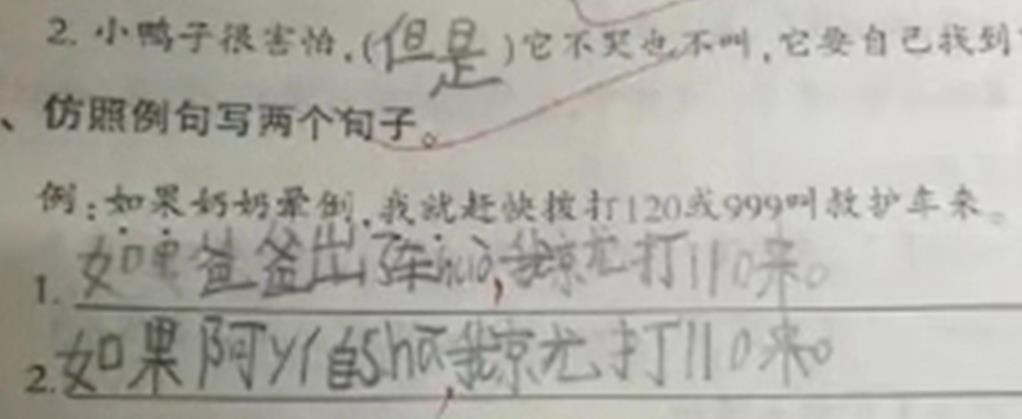 2. 小鸭子很害怕,(但是)它不哭也不叫,它要自己找到
、仿照例句写两个句子。
例:如果奶奶晕倒,我就赶快拨打120或999叫救护车来。
1. 如果爸爸出了车huò,我就打110来。
2. 如果阿yí自shā,我就打110来。